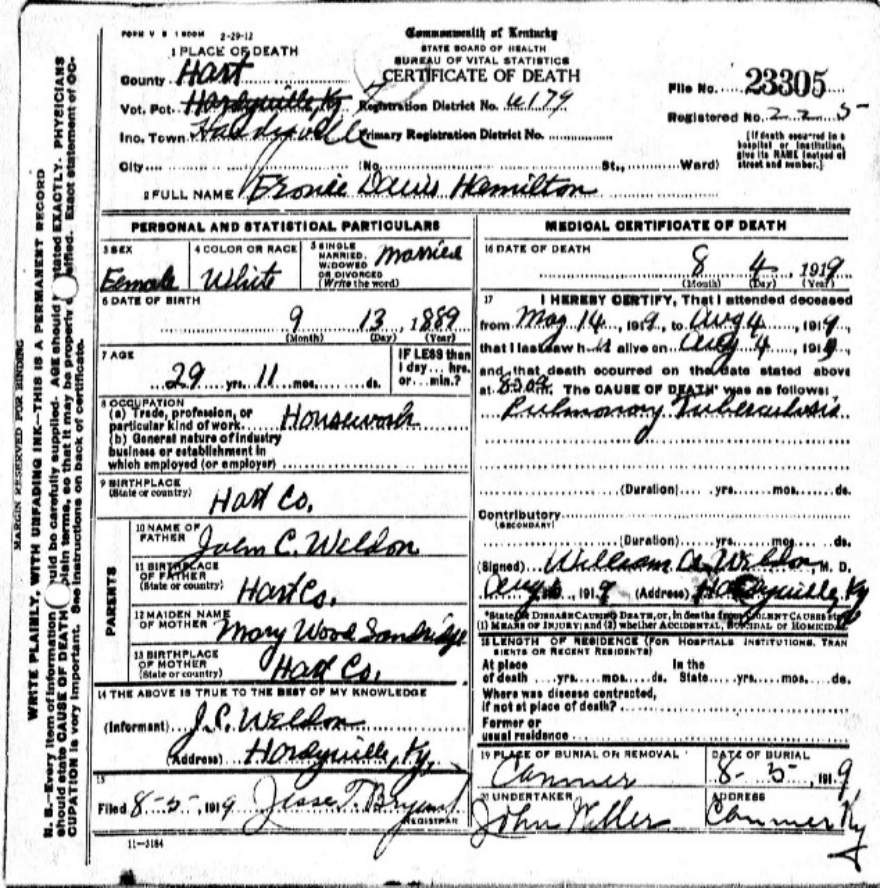 FORM V S 1 500M 2-29-12
Commonwealth of Kentucky
STATE BOARD OF HEALTH
BUREAU OF VITAL STATISTICS
CERTIFICATE OF DEATH
1 PLACE OF DEATH
County Hart
Vot. Pct. Hardyville, Ky Registration District No. 6179
Inc. Town Hardyville Primary Registration District No.
City (No. St., Ward)
File No. 23305
Registered No. 225
[If death occurred in a hospital or institution, give its NAME instead of street and number.]
2 FULL NAME Eronie Davis Hamilton
PERSONAL AND STATISTICAL PARTICULARS
3 SEX Female
4 COLOR OR RACE White
5 SINGLE MARRIED, WIDOWED OR DIVORCED (Write the word) Married
6 DATE OF BIRTH
9 13, 1889
(Month) (Day) (Year)
7 AGE
29 yrs. 11 mos. ds.
IF LESS than 1 day... hrs. or... min.?
8 OCCUPATION
(a) Trade, profession, or particular kind of work. Housework
(b) General nature of industry business or establishment in which employed (or employer)
9 BIRTHPLACE
(State or country) Hart Co.
PARENTS
10 NAME OF FATHER John C. Weldon
11 BIRTHPLACE OF FATHER (State or country) Hart Co.
12 MAIDEN NAME OF MOTHER Mary Wood Sandridge
13 BIRTHPLACE OF MOTHER (State or country) Hart Co.
14 THE ABOVE IS TRUE TO THE BEST OF MY KNOWLEDGE
(Informant) J.C. Weldon
(Address) Hardyville, Ky,
15
Filed 8-5-, 1919 Jesse T. Bryant
REGISTRAR
11-3184
MEDICAL CERTIFICATE OF DEATH
16 DATE OF DEATH
8 4, 1919
(Month) (Day) (Year)
17 I HEREBY CERTIFY, That I attended deceased
from May 14, 1919, to Aug 4, 1919,
that I last saw h alive on Aug 4, 1919
and that death occurred on the date stated above
at m. The CAUSE OF DEATH* was as follows:
Pulmonary Tuberculosis
(Duration) yrs. mos. ds.
Contributory
(SECONDARY)
(Duration) yrs. mos. ds.
(Signed) William A. Weldon, M. D.
Aug, 1919 (Address) Hardyville, Ky
*State the DISEASE CAUSING DEATH, or, in deaths from VIOLENT CAUSES state
(1) MEANS OF INJURY; and (2) whether ACCIDENTAL, SUICIDAL OR HOMICIDAL
18 LENGTH OF RESIDENCE (FOR HOSPITALS INSTITUTIONS, TRANSIENTS OR RECENT RESIDENTS)
At place of death yrs. mos. ds. In the State yrs. mos. ds.
Where was disease contracted,
if not at place of death?
Former or
usual residence
19 PLACE OF BURIAL OR REMOVAL Canmer
DATE OF BURIAL 8-5, 1919
20 UNDERTAKER John
ADDRESS Canmer Ky
MARGIN RESERVED FOR BINDING
WRITE PLAINLY, WITH UNFADING INK—THIS IS A PERMANENT RECORD
N. B.—Every item of information should be carefully supplied. AGE should be stated EXACTLY. PHYSICIANS
should state CAUSE OF DEATH in plain terms, so that it may be properly classified. Exact statement of OC-
CUPATION is very important. See instructions on back of certificate.